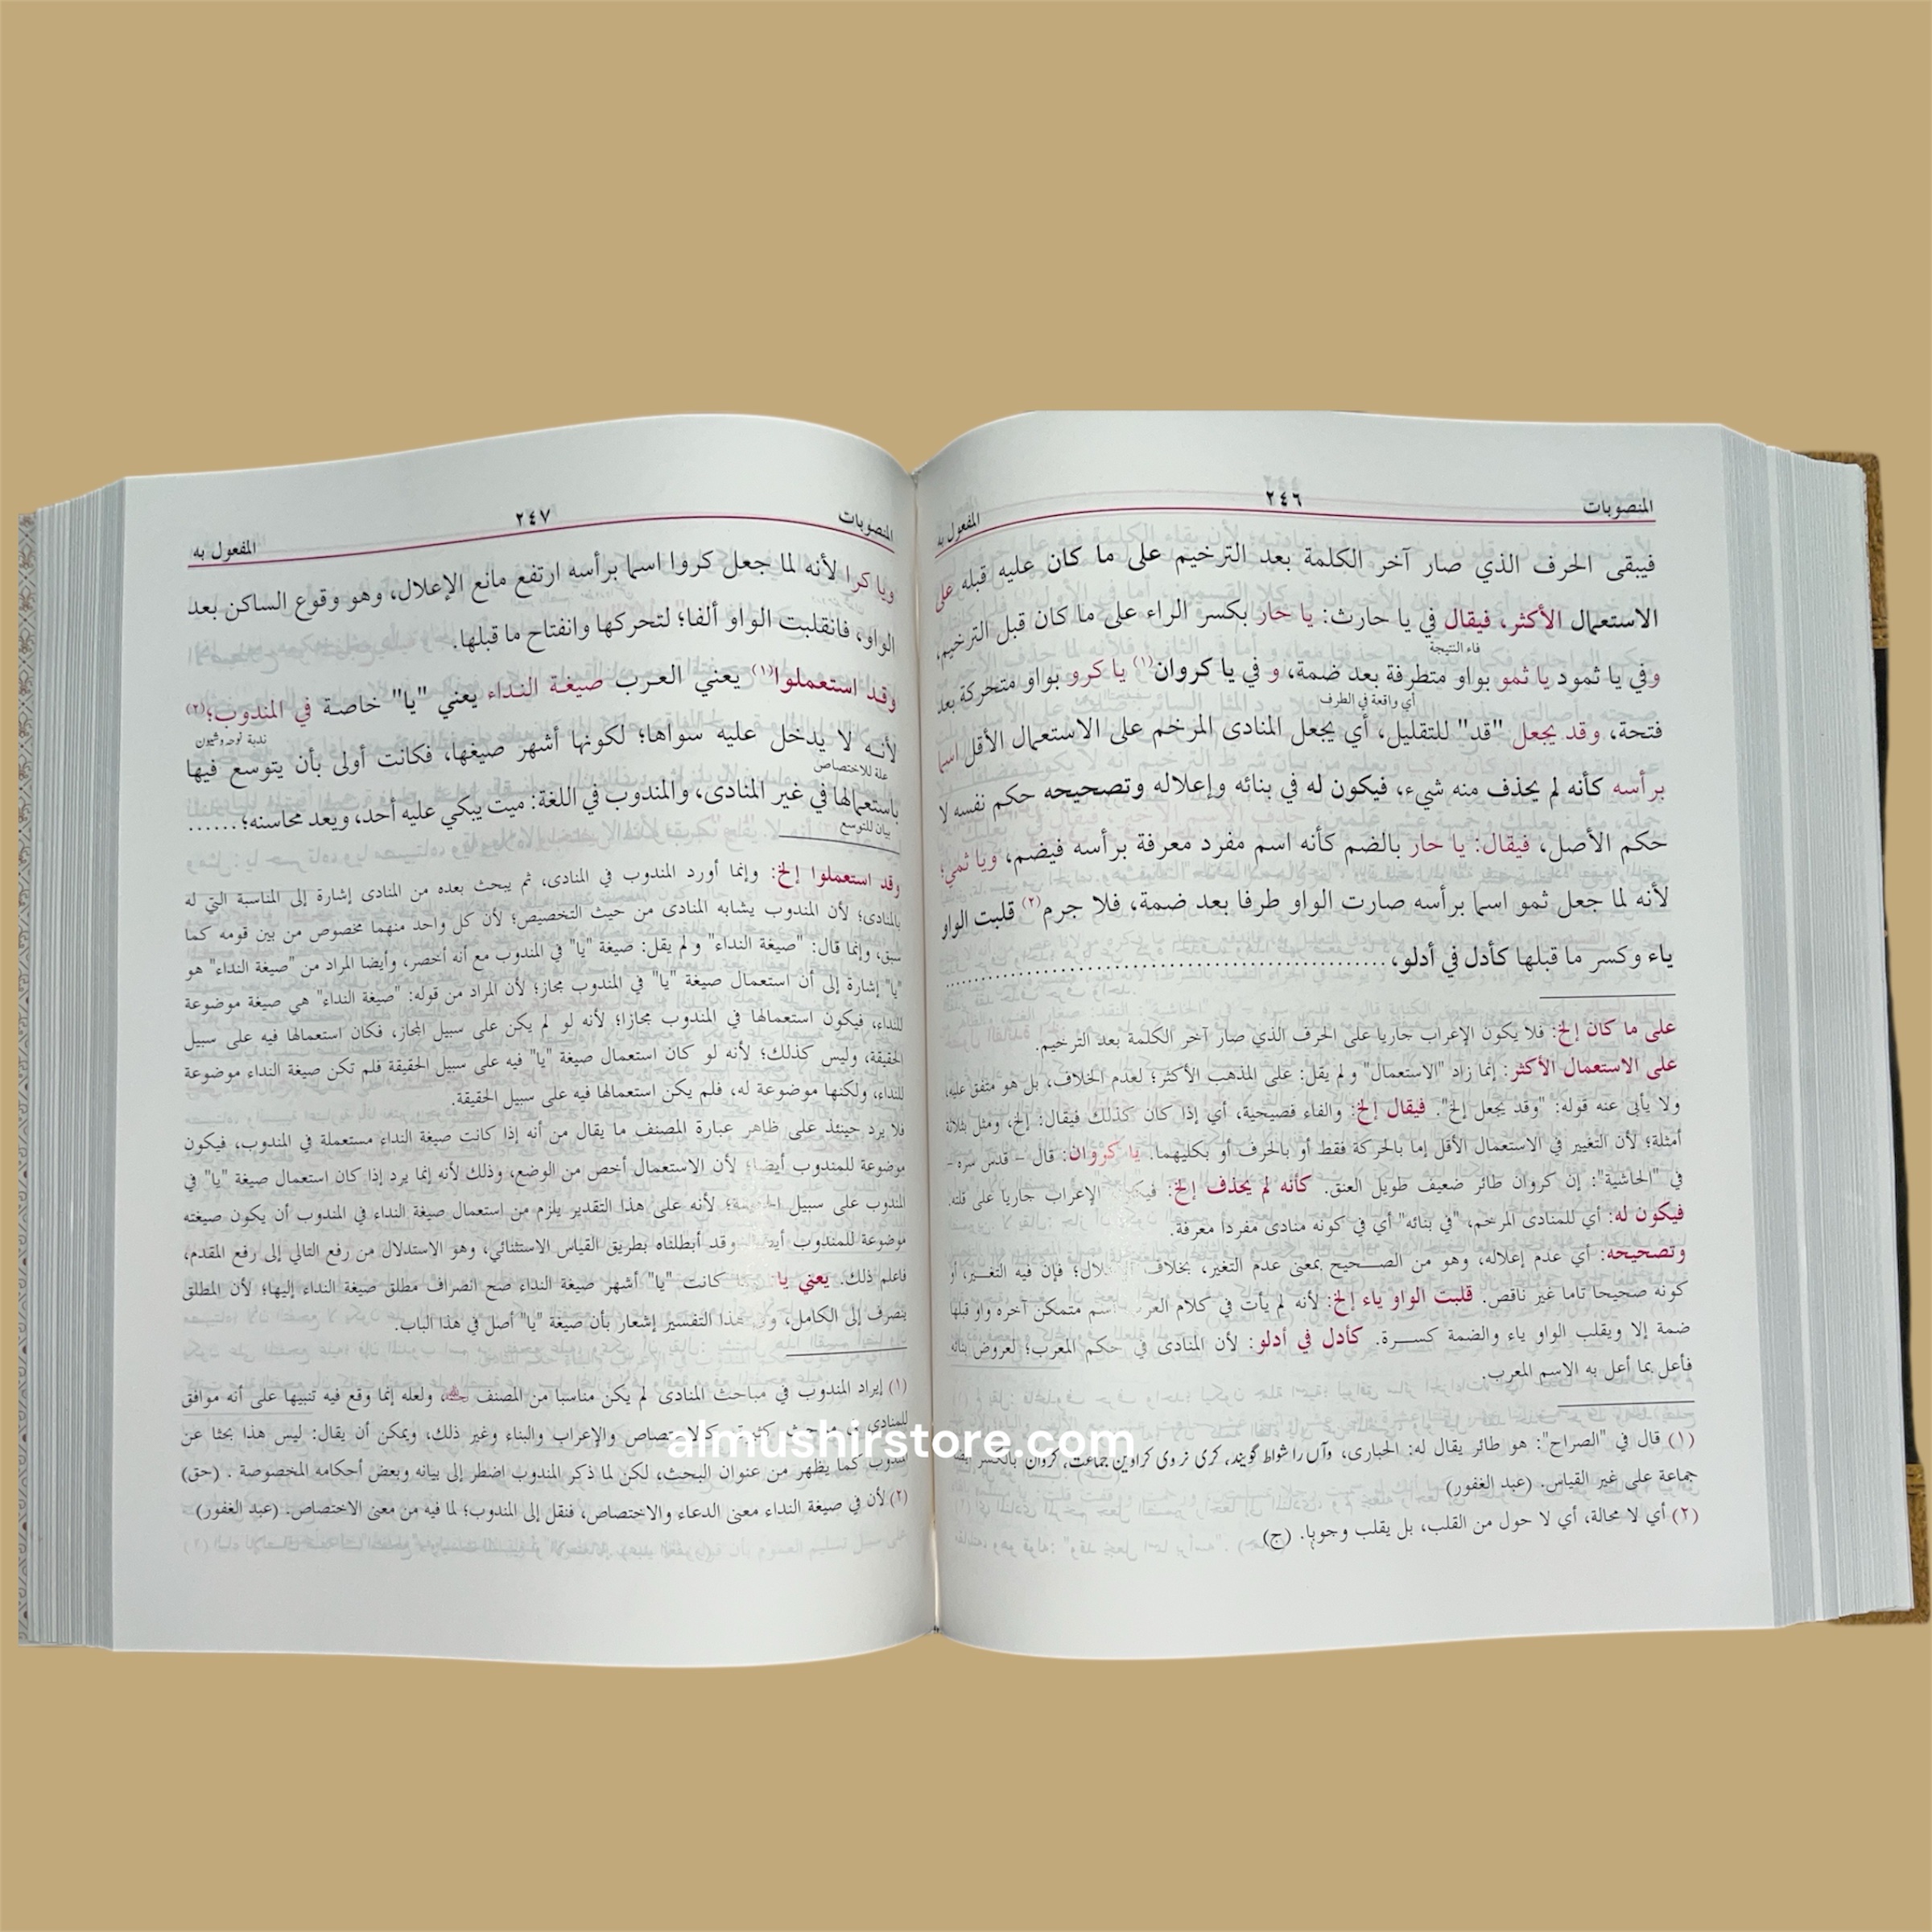 المنصوبات ٢٤٦ المفعول به
فيبقى الحرف الذي صار آخر الكلمة بعد الترخيم على ما كان عليه قبله على
الاستعمال الأكثر، فيقال في يا حارث: يا حار بكسر الراء على ما كان قبل الترخيم،
فاء النتيجة
وفي يا ثمود يا ثمو بواو متطرفة بعد ضمة، و في يا كروان(١) يا كرو بواو متحركة بعد
أي واقعة في الطرف
فتحة، وقد يجعل "قد" للتقليل، أي يجعل المنادى المرخم على الاستعمال الأقل اسما
برأسه كأنه لم يحذف منه شيء، فيكون له في بنائه وإعلاله وتصحيحه حكم نفسه لا
حكم الأصل، فيقال: يا حار بالضم كأنه اسم مفرد معرفة برأسه فيضم، ويا ثمي؛
لأنه لما جعل ثمو اسما برأسه صارت الواو طرفا بعد ضمة، فلا جرم(٢) قلبت الواو
ياء وكسر ما قبلها كأدل في أدلو،..........
على ما كان إلخ: فلا يكون الإعراب جاريا على الحرف الذي صار آخر الكلمة بعد الترخيم.
على الاستعمال الأكثر: إنما زاد "الاستعمال" و لم يقل: على المذهب الأكثر؛ لعدم الخلاف، بل هو متفق عليه،
ولا يأبى عنه قوله: "وقد يجعل إلخ". فيقال إلخ: والفاء فصيحية، أي إذا كان كذلك فيقال: إلخ، ومثل بثلاثة
أمثلة؛ لأن التغيير في الاستعمال الأقل إما بالحركة فقط أو بالحرف أو بكليهما. يا كروان: قال – قدس سره –
في "الحاشية": إن كروان طائر ضعيف طويل العنق. كأنه لم يحذف إلخ: الإعراب جاريا على قلته.
فيكون له: أي للمنادى المرخم، "في بنائه" أي في كونه منادى مفردا معرفة.
وتصحيحه: أي عدم إعلاله، وهو من الصحيح بمعنى عدم التغير، بخلاف فإن فيه التغير، أو
كونه صحيحا تاما غير ناقص. قلبت الواو ياء إلخ: لأنه لم يأت في كلام العرب اسم متمكن آخره واو قبلها
ضمة إلا ويقلب الواو ياء والضمة كسرة. كأدل في أدلو: لأن المنادى في حكم المعرب؛ لعروض بنائه
فأعل بما أعل به الاسم المعرب.
(١) قال في "الصراح": هو طائر يقال له: الحبارى، وآں را شواط گویند، کری نر وی کراوین جماعت، کروان بالکسر ایضا
جماعة على غير القياس. (عبد الغفور)
(٢) أي لا محالة، أي لا حول من القلب، بل يقلب وجوبا. (ج)
المنصوبات ٢٤٧ المفعول به
ويا كرا لأنه لما جعل كروا اسما برأسه ارتفع مانع الإعلال، وهو وقوع الساكن بعد
الواو، فانقلبت الواو ألفا؛ لتحركها وانفتاح ما قبلها.
وقد استعملوا(١) يعني العرب صيغة النداء يعني "يا" خاصة في المندوب؛(٢)
ندبة نوحه وشيون
لأنه لا يدخل عليه سواها؛ لكونها أشهر صيغها، فكانت أولى بأن يتوسع فيها
علة للاختصاص
باستعمالها في غير المنادى، والمندوب في اللغة: ميت يبكي عليه أحد، ويعد محاسنه؛......
بيان للتوسع
وقد استعملوا إلخ: وإنما أورد المندوب في المنادى، ثم يبحث بعده من المنادى إشارة إلى المناسبة التي له
بالمنادى؛ لأن المندوب يشابه المنادى من حيث التخصيص؛ لأن كل واحد منهما مخصوص من بين قومه كما
سبق، وإنما قال: "صيغة النداء" و لم يقل: صيغة "يا" في المندوب مع أنه أخصر، وأيضا المراد من "صيغة النداء" هو
"يا" إشارة إلى أن استعمال صيغة "يا" في المندوب مجاز؛ لأن المراد من قوله: "صيغة النداء" هي صيغة موضوعة
للنداء، فيكون استعمالها في المندوب مجازا؛ لأنه لو لم يكن على سبيل المجاز، فكان استعمالها فيه على سبيل
الحقيقة، وليس كذلك؛ لأنه لو كان استعمال صيغة "يا" فيه على سبيل الحقيقة فلم تكن صيغة النداء موضوعة
للنداء، ولكنها موضوعة له، فلم يكن استعمالها فيه على سبيل الحقيقة.
فلا يرد حينئذ على ظاهر عبارة المصنف ما يقال من أنه إذا كانت صيغة النداء مستعملة في المندوب، فيكون
موضوعة للمندوب أيضا؛ لأن الاستعمال أخص من الوضع، وذلك لأنه إنما يرد إذا كان استعمال صيغة "يا" في
المندوب على سبيل الحقيقة؛ لأنه على هذا التقدير يلزم من استعمال صيغة النداء في المندوب أن يكون صيغته
موضوعة للمندوب أيضا وقد أبطلناه بطريق القياس الاستثنائي، وهو الاستدلال من رفع التالي إلى رفع المقدم،
فاعلم ذلك. يعني يا كانت "يا" أشهر صيغة النداء صح انصراف مطلق صيغة النداء إليها؛ لأن المطلق
ينصرف إلى الكامل، هذا التفسير إشعار بأن صيغة "يا" أصل في هذا الباب.
(١) إيراد المندوب في مباحث المنادى لم يكن مناسبا من المصنف ولعله إنما وقع فيه تنبيها على أنه موافق
للمنادى والإعراب والبناء وغير ذلك، ويمكن أن يقال: ليس هذا بحثا عن
المندوب كما يظهر من عنوان البحث، لكن لما ذكر المندوب اضطر إلى بيانه وبعض أحكامه المخصوصة . (حق)
(٢) لأن في صيغة النداء معنى الدعاء والاختصاص، فنقل إلى المندوب؛ لما فيه من معنى الاختصاص. (عبد الغفور)
almushirstore.com